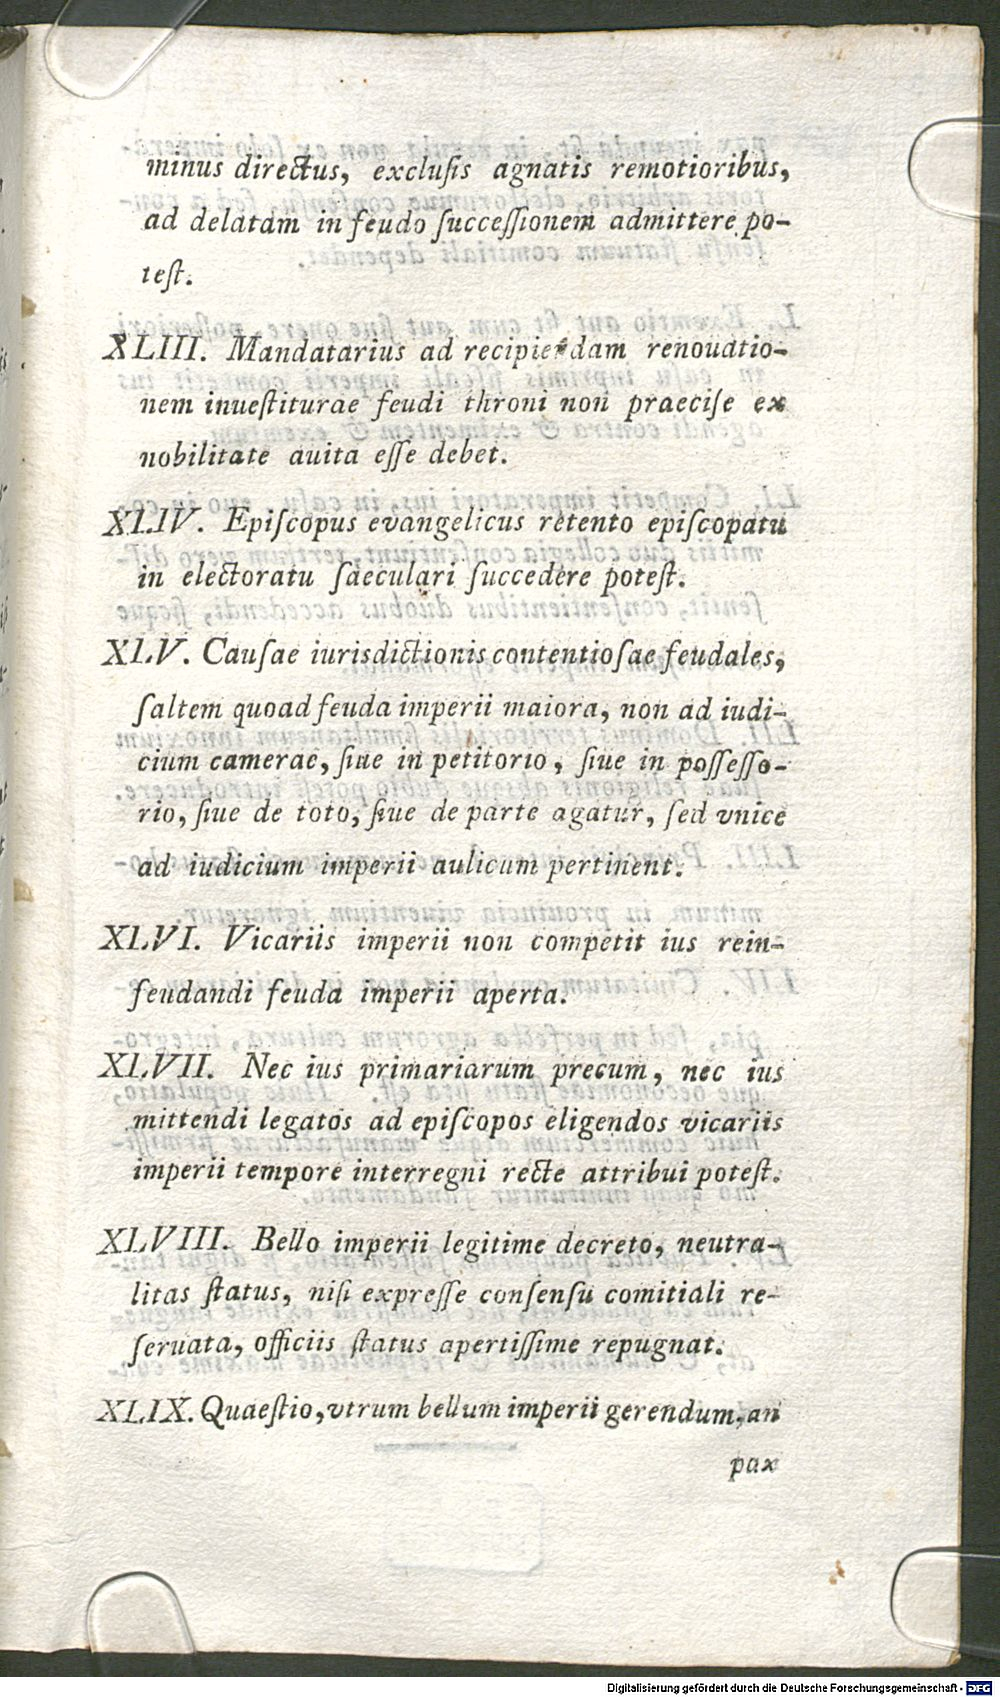 minus directus, exclusis agnatis remotioribus,
ad delatam in feudo successionem admittere po-
test.
XLIII. Mandatarius ad recipiendam renouatio-
nem inuestiturae feudi throni non praecise ex
nobilitate auita esse debet.
XLIV. Episcopus evangelicus retento episcopatu
in electoratu saeculari succedere potest.
XLV. Causae iurisdictionis contentiosae feudales,
saltem quoad feuda imperii maiora, non ad iudi-
cium camerae, siue in petitorio, siue in possesso-
rio, siue de toto, siue de parte agatur, sed vnice
ad iudicium imperii aulicum pertinent.
XLVI. Vicariis imperii non competit ius rein-
feudandi feuda imperii aperta.
XLVII. Nec ius primariarum precum, nec ius
mittendi legatos ad episcopos eligendos vicariis
imperii tempore interregni recte attribui potest.
XLVIII. Bello imperii legitime decreto, neutra-
litas status, nisi expresse consensu comitiali re-
seruata, officiis status apertissime repugnat.
XLIX. Quaestio, vtrum bellum imperii gerendum, an
pax
Digitalisierung gefördert durch die Deutsche Forschungsgemeinschaft - DFG